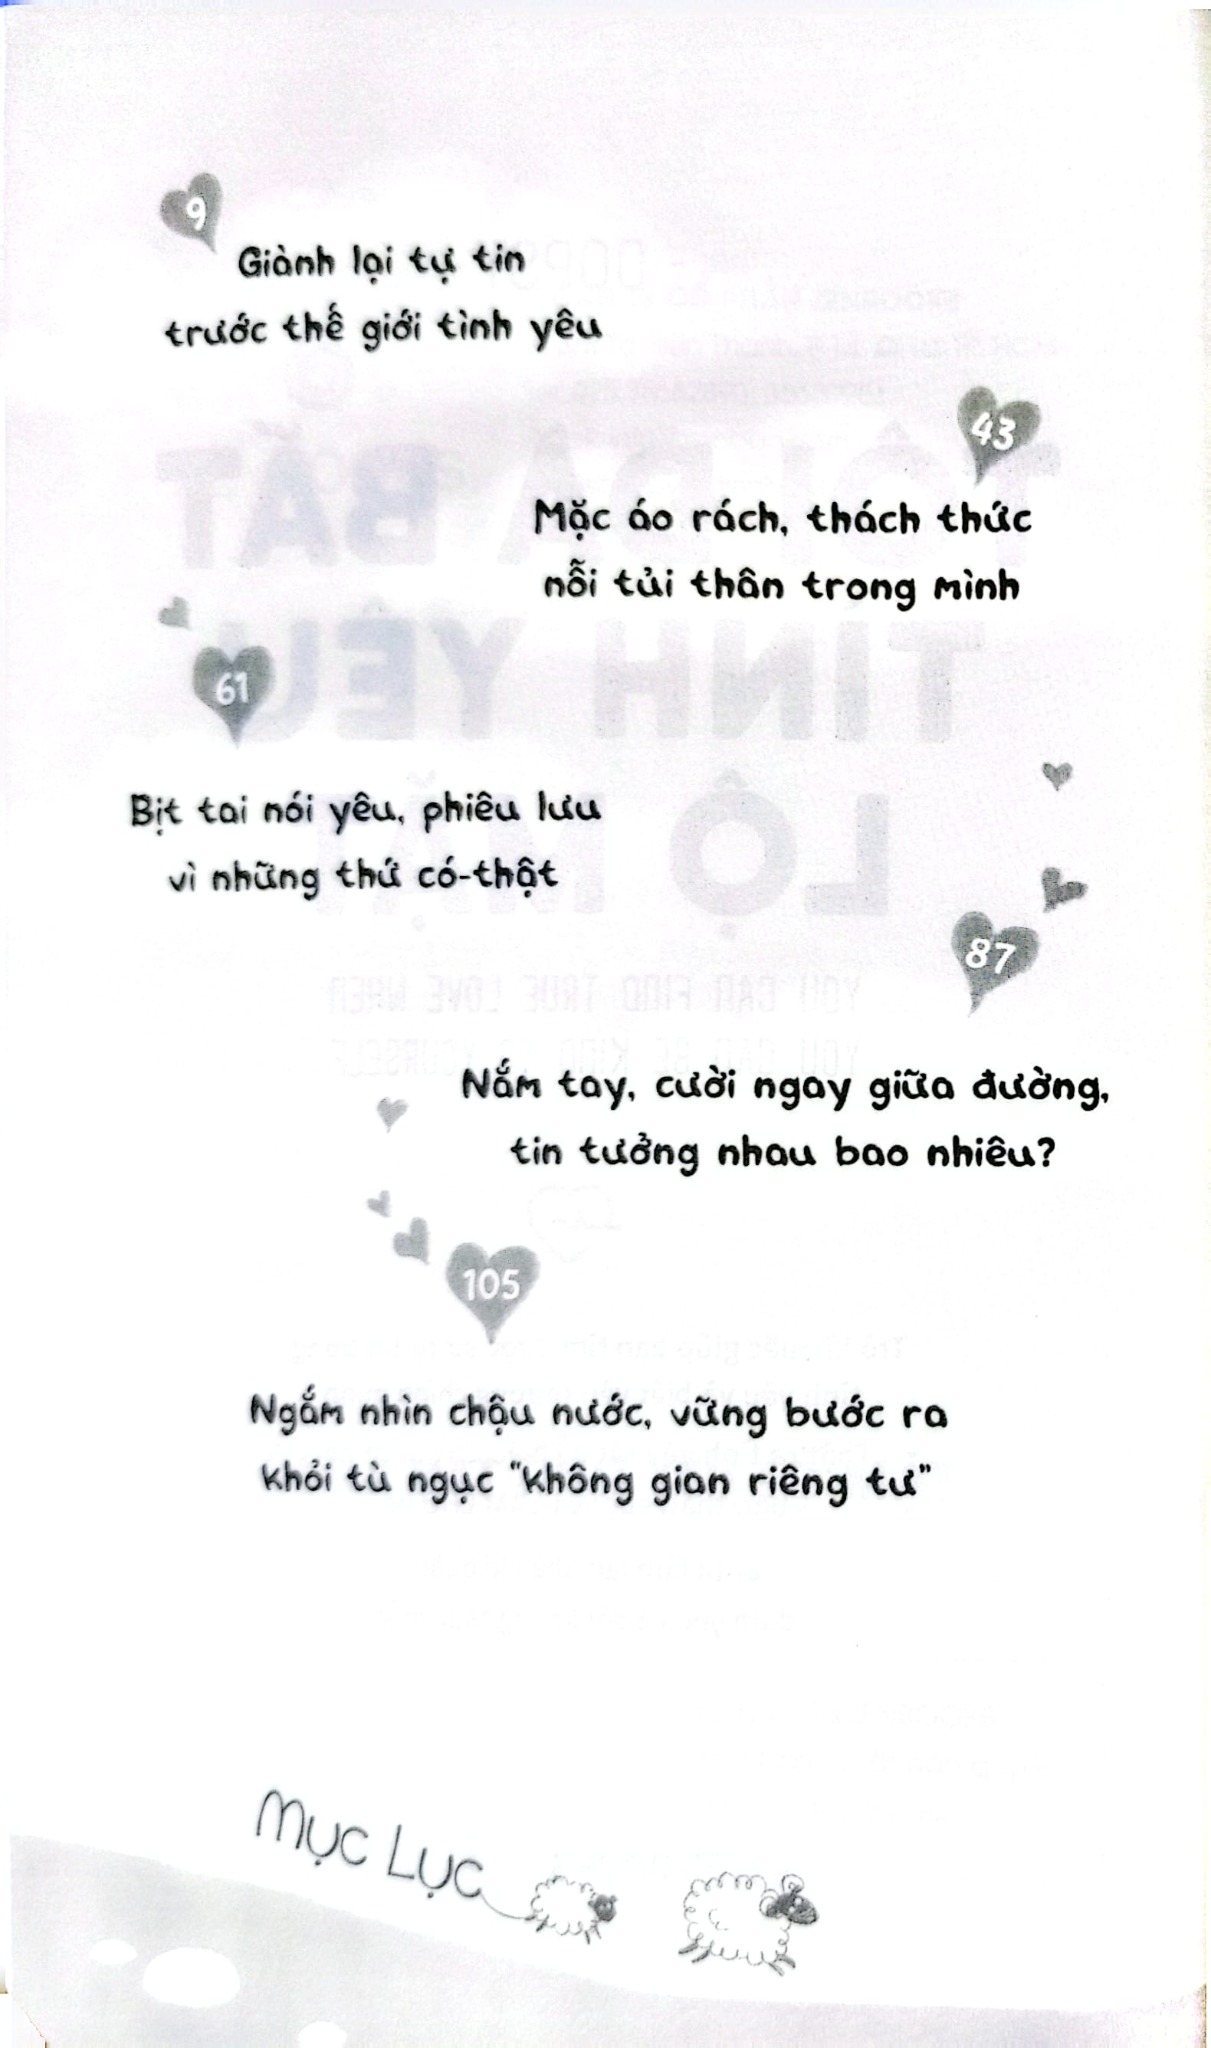 9
Giành lại tự tin
trước thế giới tình yêu
43
Mặc áo rách, thách thức
nỗi tủi thân trong mình
61
Bịt tai nói yêu, phiêu lưu
vì những thứ có-thật
87
Nắm tay, cười ngay giữa đường,
tin tưởng nhau bao nhiêu?
105
Ngắm nhìn chậu nước, vững bước ra
khỏi tù ngục "không gian riêng tư"
Mục Lục